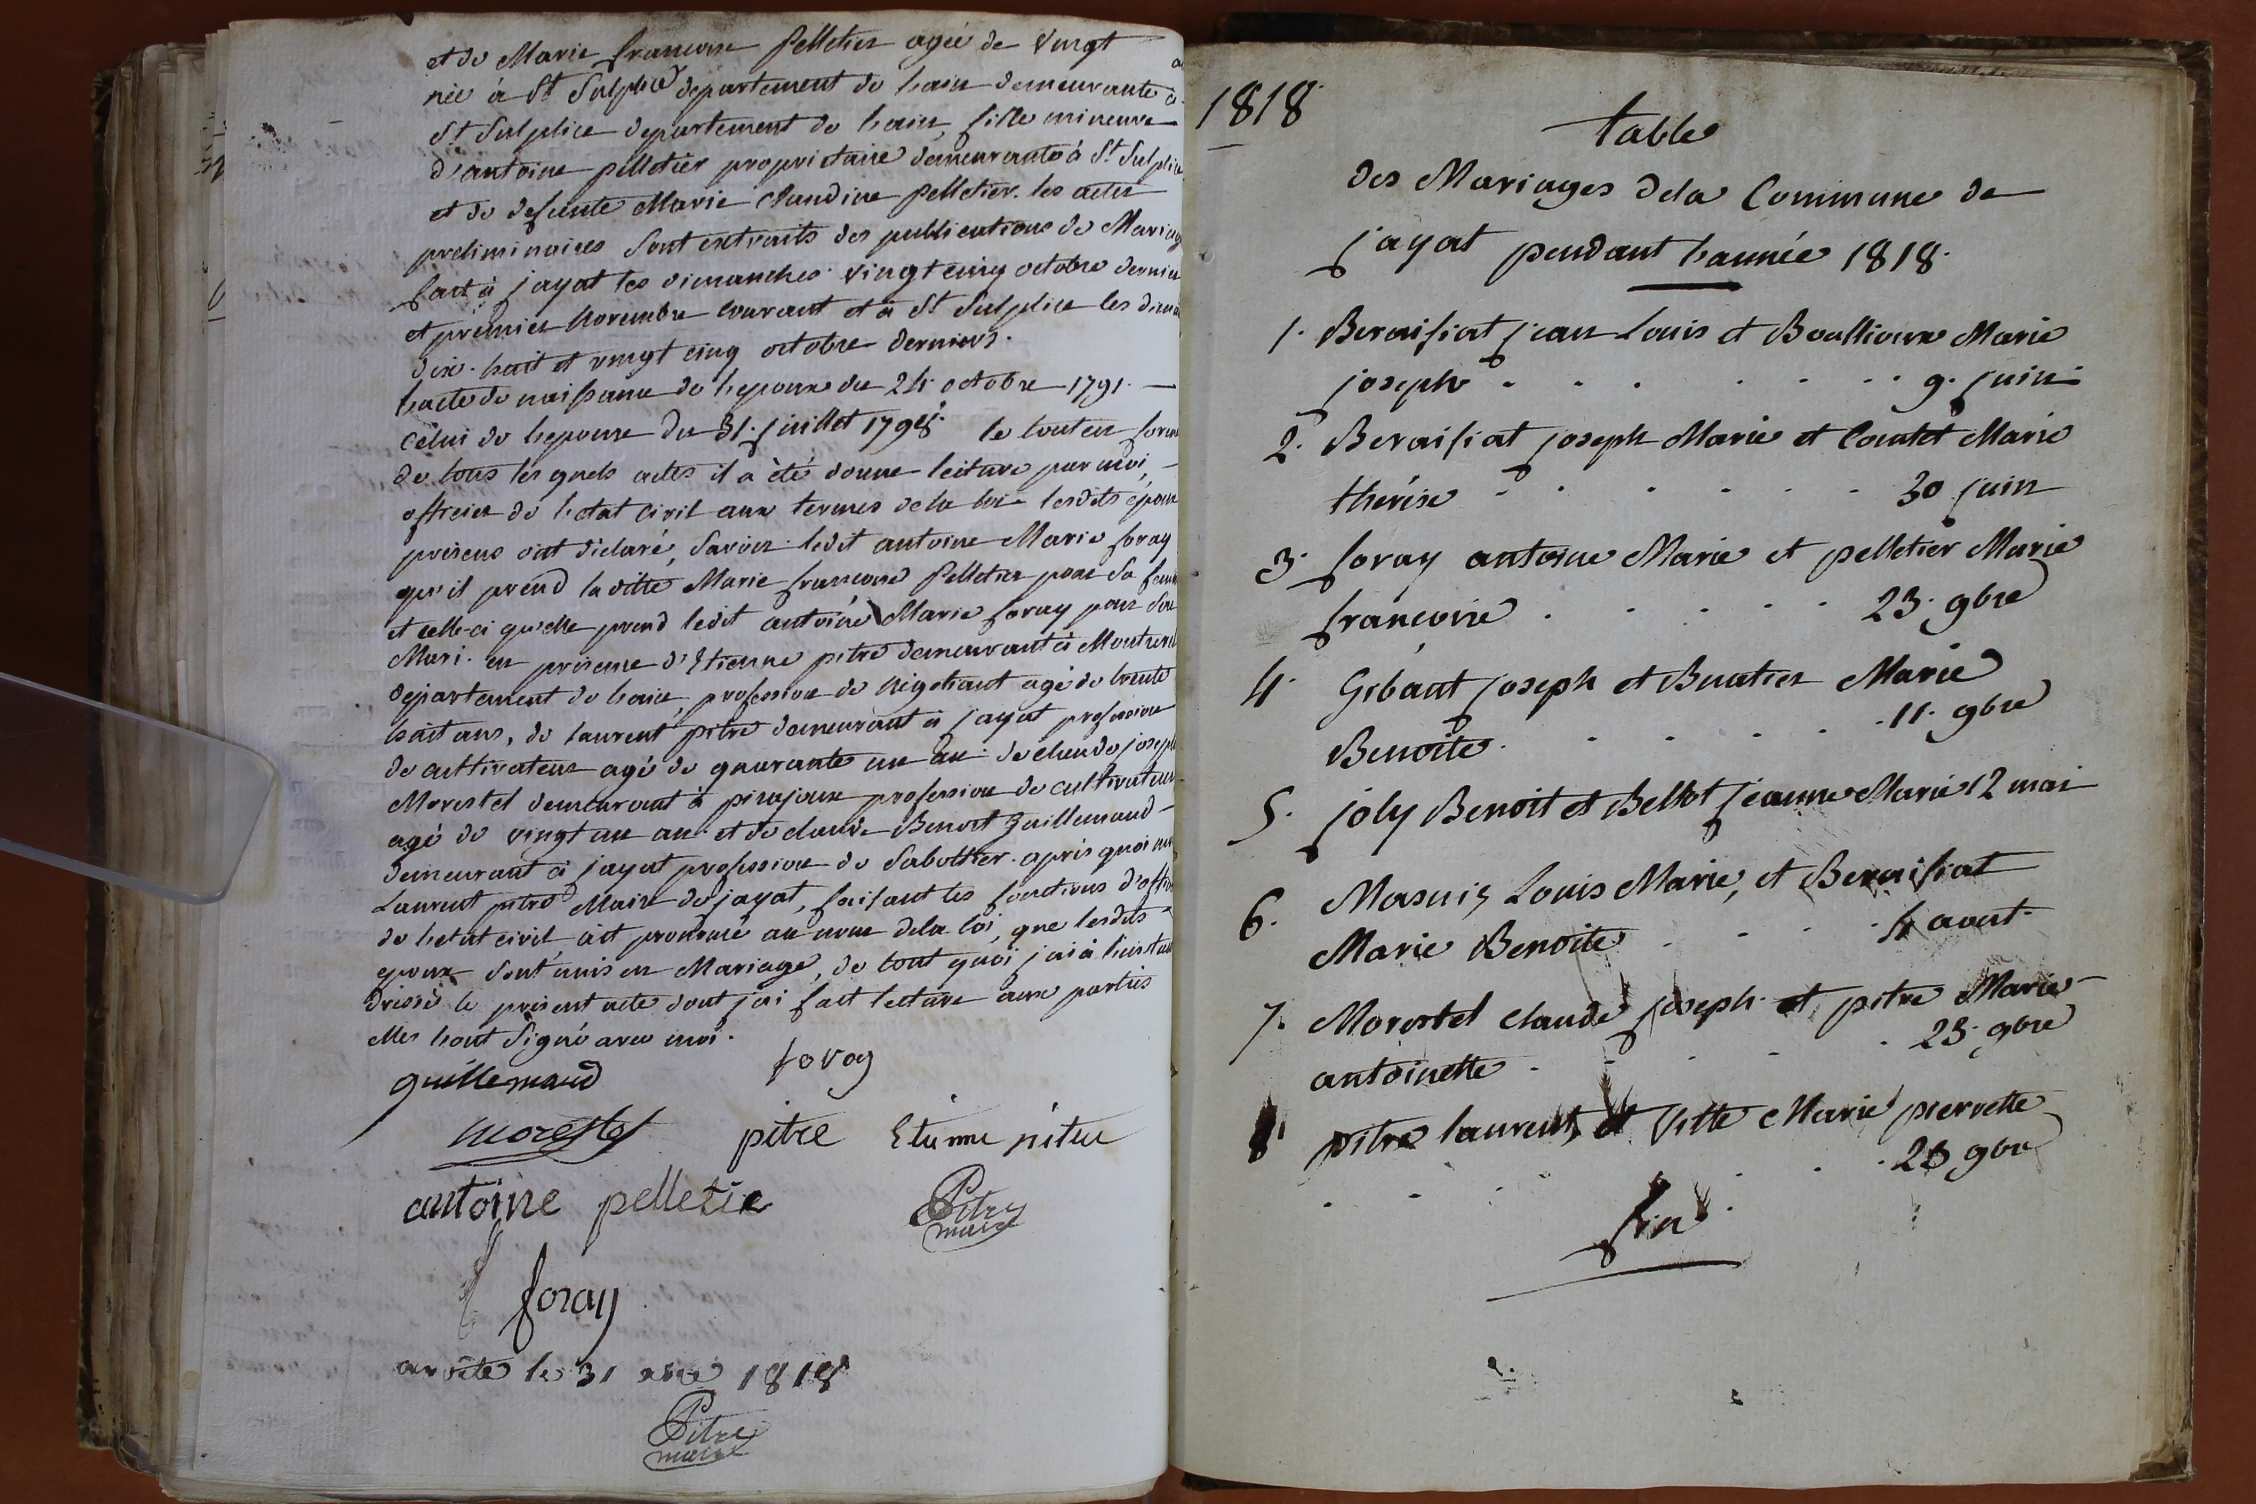 et de Marie françoise Pelletier agée de Vingt
née à St Sulplice departement de Lain demeurante à
St Sulplice departement de Lain, fille mineure
d'antoine pelletier proprietaire demeurante à St Sulplice
et de defunte Marie Claudine Pelletier. les actes
preliminaires sont extraits des publications de Mariage
fait à jayat les dimanches vingt cinq octobre dernier
et premier Novembre Courant et à St Sulplice les
dix-huit et vingt cinq octobre derniers.
Lacte de naissance de lepoux du 24 octobre 1791.
Celui de lepouse du 31 juillet 1798. le tout en
de tous les quels actes il a été donne lecture par moi,
officier de letat Civil aux termes de la loi lesdits époux
présens ont déclaré, Savoir ledit antoine Marie foray
qu'il prend la ditte Marie françoise Pelletier pour Sa
et celle-ci qu'elle prend ledit antoine Marie foray pour Son
Mari. en présence d'Etienne pitre demeurant à
département de Lain, profession de Négotiant agé de trente
huit ans, de Laurent pitre demeurant à jayat profession
de cultivateur agé de quarante un an de claude joseph
Morestel demeurant à pirajoux profession de cultivateur
agé de vingt un an et de claude Benoit Guillemaud
demeurant à jayat profession de Sabottier. après quoi
Laurent pitre Maire de jayat, faisant les fonctions d'
de letat civil ait prononcé au nom dela loi, que lesdits
époux sont unis en Mariage, de tout quoi j'ai à l'instant
dressé le présent acte dont j'ai fait lecture aux parties
elles lont Signé avec moi.
guillemaud foray
morestel pitre Etienne pitre
antoine pelletie Pitre
maire
foray
arrêté le 31 xbre 1818
Pitre
maire
1818
table
des Mariages dela Commune de
jayat pendant lannée 1818.
1. Beraisiat jean Louis et Boullioux Marie
joseph . . . . . . . 9. juin
2. Beraisiat joseph Marie et Coutet Marie
thérése . . . . . . 30 juin
3. foray antoine Marie et pelletier Marie
françoise . . . . . 23. 9bre
4. Gibaut joseph et Buatier Marie
Benoite . . . . . 11. 9bre
5. joly Benoit et Bellot jeanne Marie 12 mai
6. Masuis Louis Marie, et Beraisiat
Marie Benoite . . . . 4 aout
7. Morestel claude joseph et pitre Marie
antoinette . . . . . 23. 9bre
8 pitre laurent, et Vitte Marie pierrette
. . . . . . 23 9bre
fin